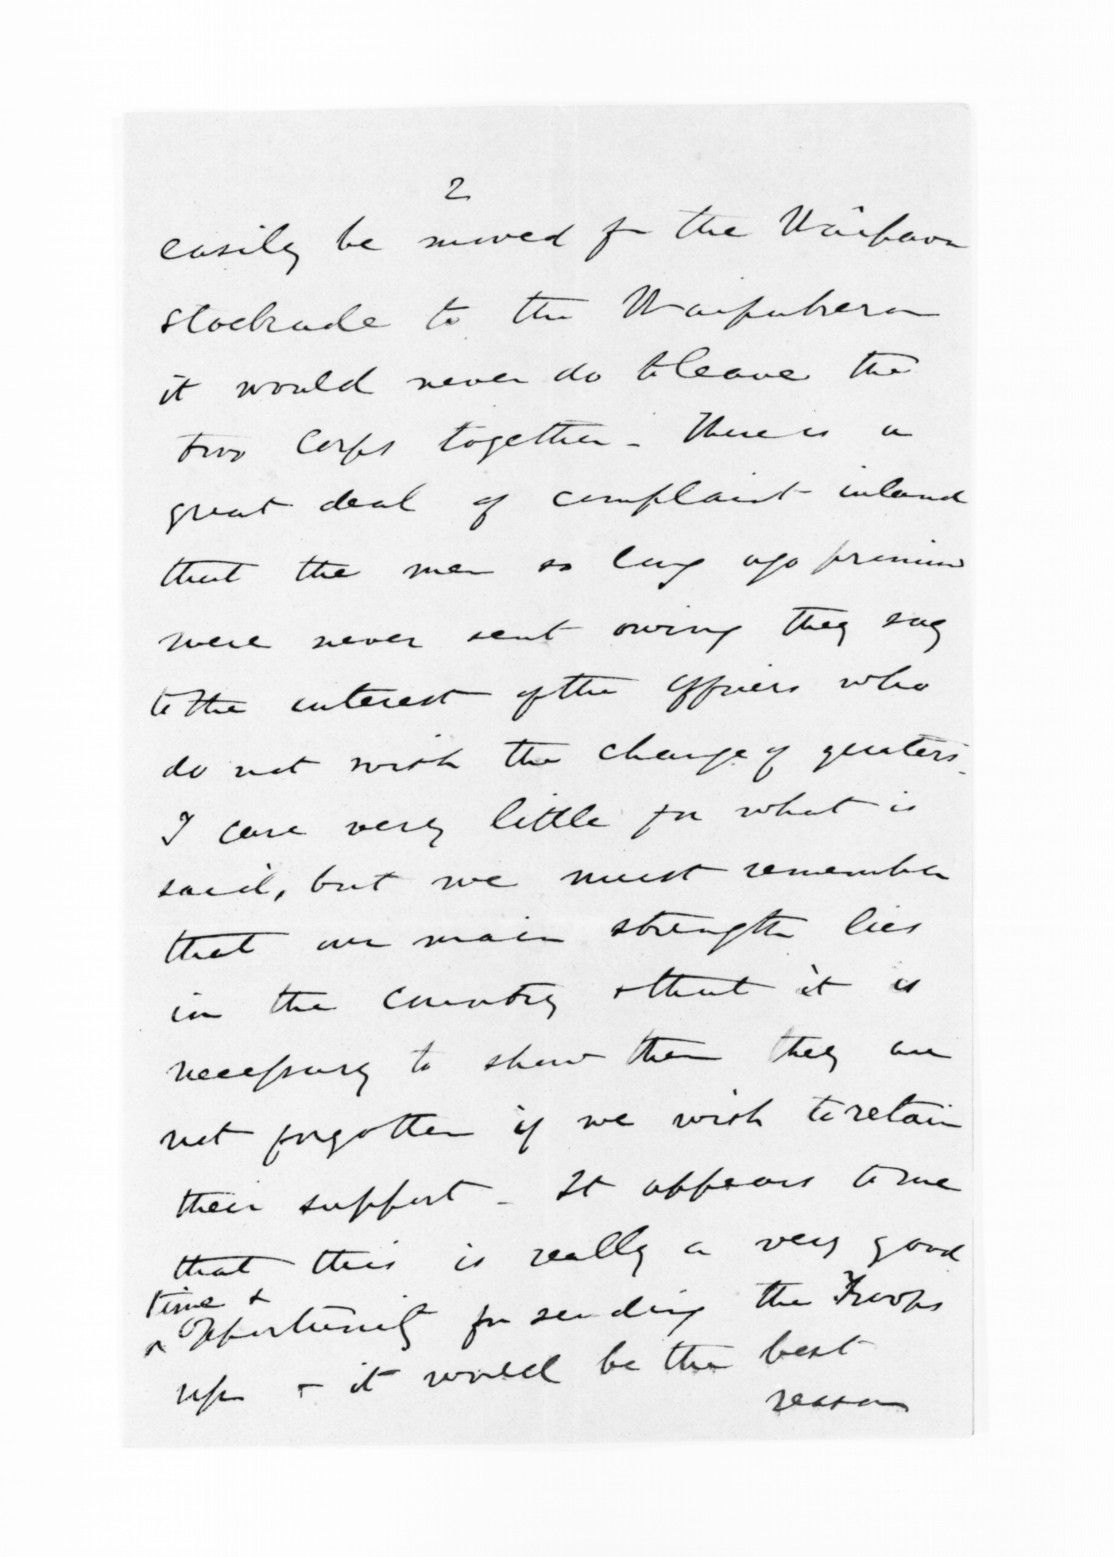 2
easily be moved fr the Waipawa
stockade to the Waipukurau
it would never do to leave the
two Corps together - There is a
great deal of complaint inland
that the men so long ago promised
were never sent owing they say
to the interest of the Officers who
do not wish the change of quarters.
I care very little for what is
said, but we must remember
that our main strength lies
in the country & that it is
necessary to show them they are
not forgotten if we wish to retain
their support - It appears to me
that this is really a very good
time &
opportunity for sending the Troops
up & it would be the best
reason